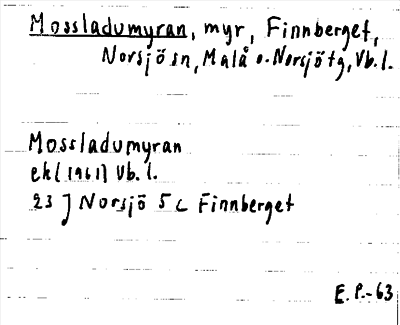 Mossladumyran, myr, Finnberget,
Norsjö sn, Malå o. Norsjö tg, Vb. l.
Mossladumyran
ek [1961] Vb. l.
23 J Norsjö 5 c Finnberget
E. P.-63